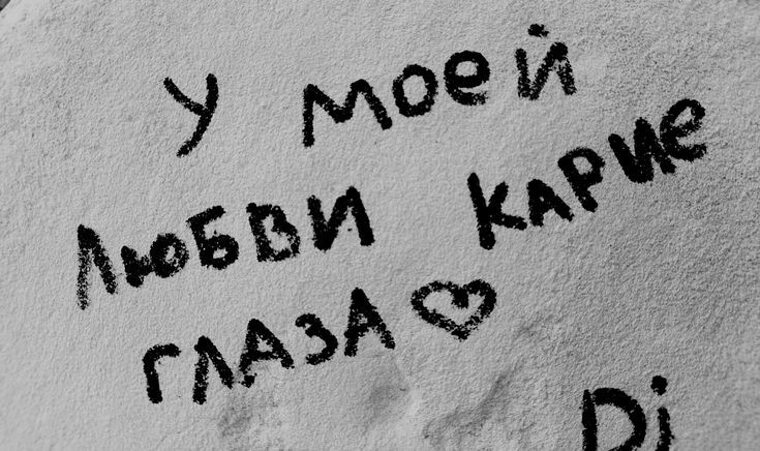 У моей
ЛЮБВИ КАРИЕ
ГЛАЗА♡
Di